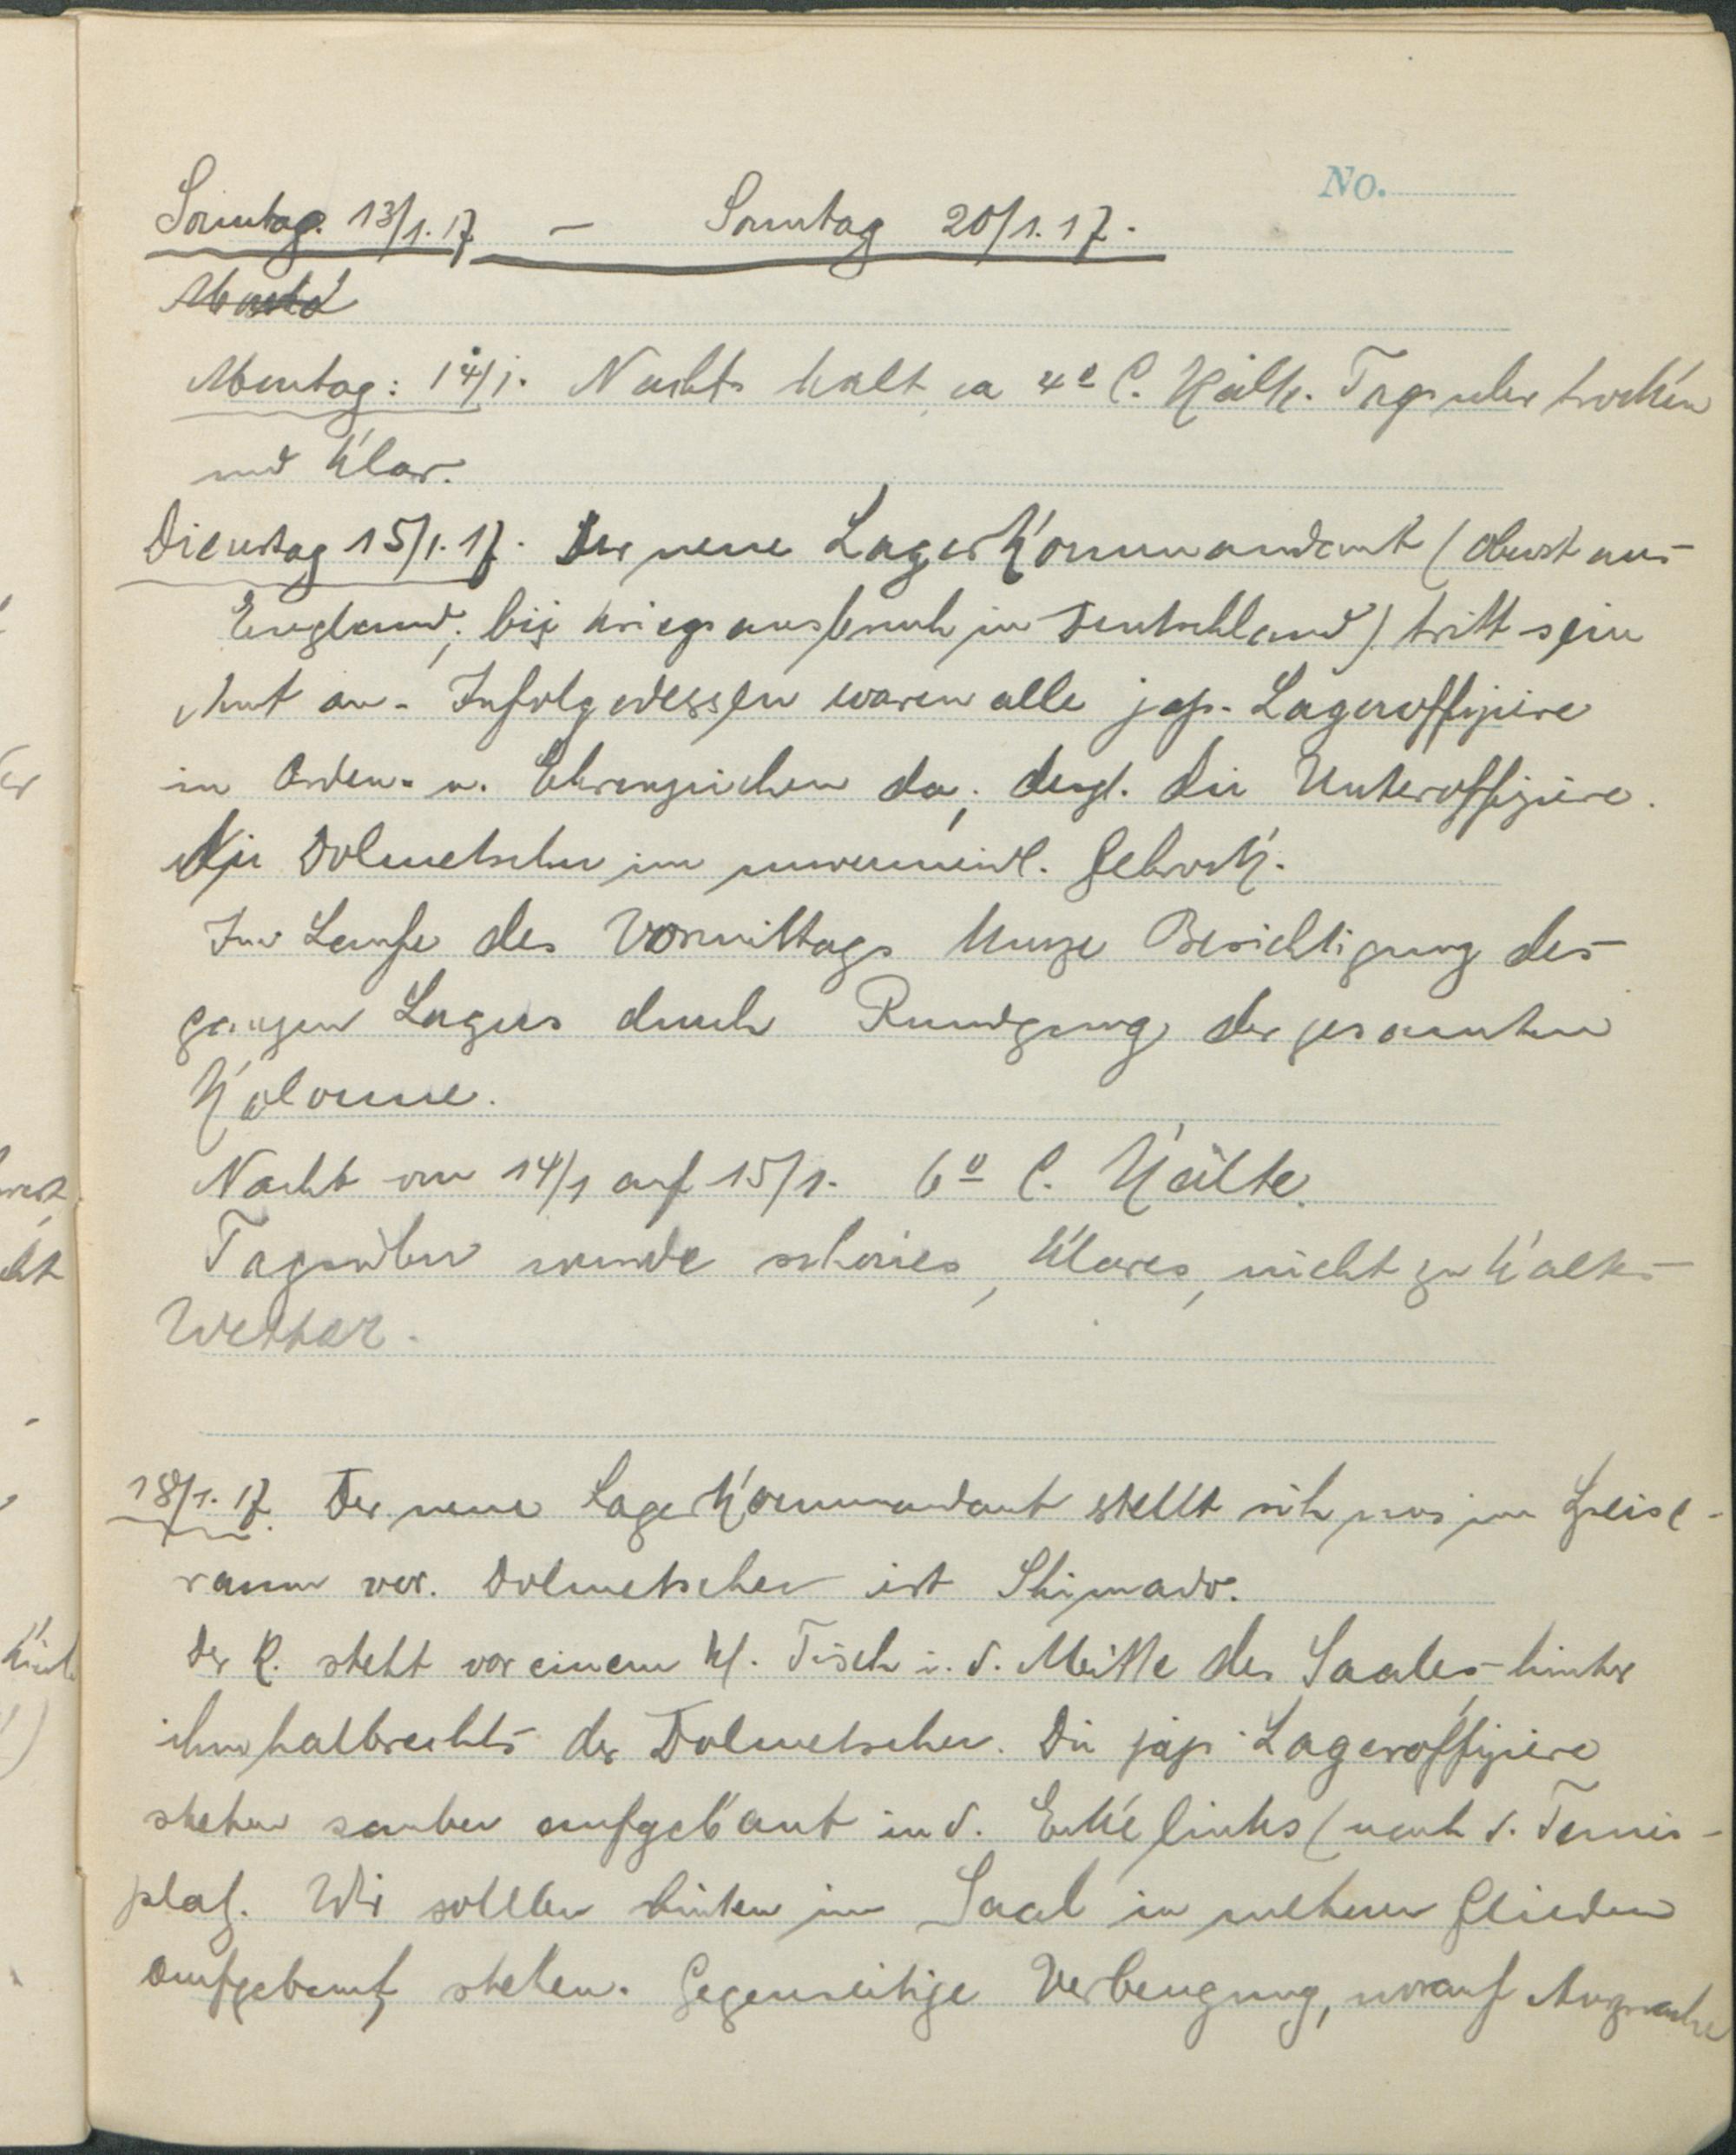 No.
Sonntag. 13/1.17 – Sonntag 20/1.17.
Montag: 14/1. Nachts kalt, ca 4° C. Kälte. Tagsüber trocken
und klar.
Dienstag 15/1.17. Der neue Lagerkommandant (Oberst aus
England, bis Kriegsausbruch in Deutschland) tritt sein
Amt an. Infolgedessen waren alle jap. Lageroffiziere
in Orden- u. Ehrenzeichen da, desgl. die Unteroffiziere.
Die Dolmetscher im unvermeidl. Gehrock.
Im Laufe des Vormittags kurze Besichtigung des
ganzen Lagers durch Rundgang der gesamten
Kolonne.
Nacht von 14/1 auf 15/1. 6° C. Kälte.
Tagsüber wurde schönes, klares, nicht zu kaltes
Wetter.
18/1.17. Der neue Lagerkommandant stellt sich uns im Speise-
raum vor. Dolmetscher ist Shimado.
Der K. steht vor einem kl. Tisch i. d. Mitte des Saales, hinter
ihm halbrechts der Dolmetscher. Die jap. Lageroffiziere
stehen sauber aufgebaut in d. Ecke links (nach d. Tennis-
platz. Wir sollten hinten im Saal in mehreren Gliedern
aufgebaut stehen. Gegenseitige Verbeugung, worauf Ansprache
kt